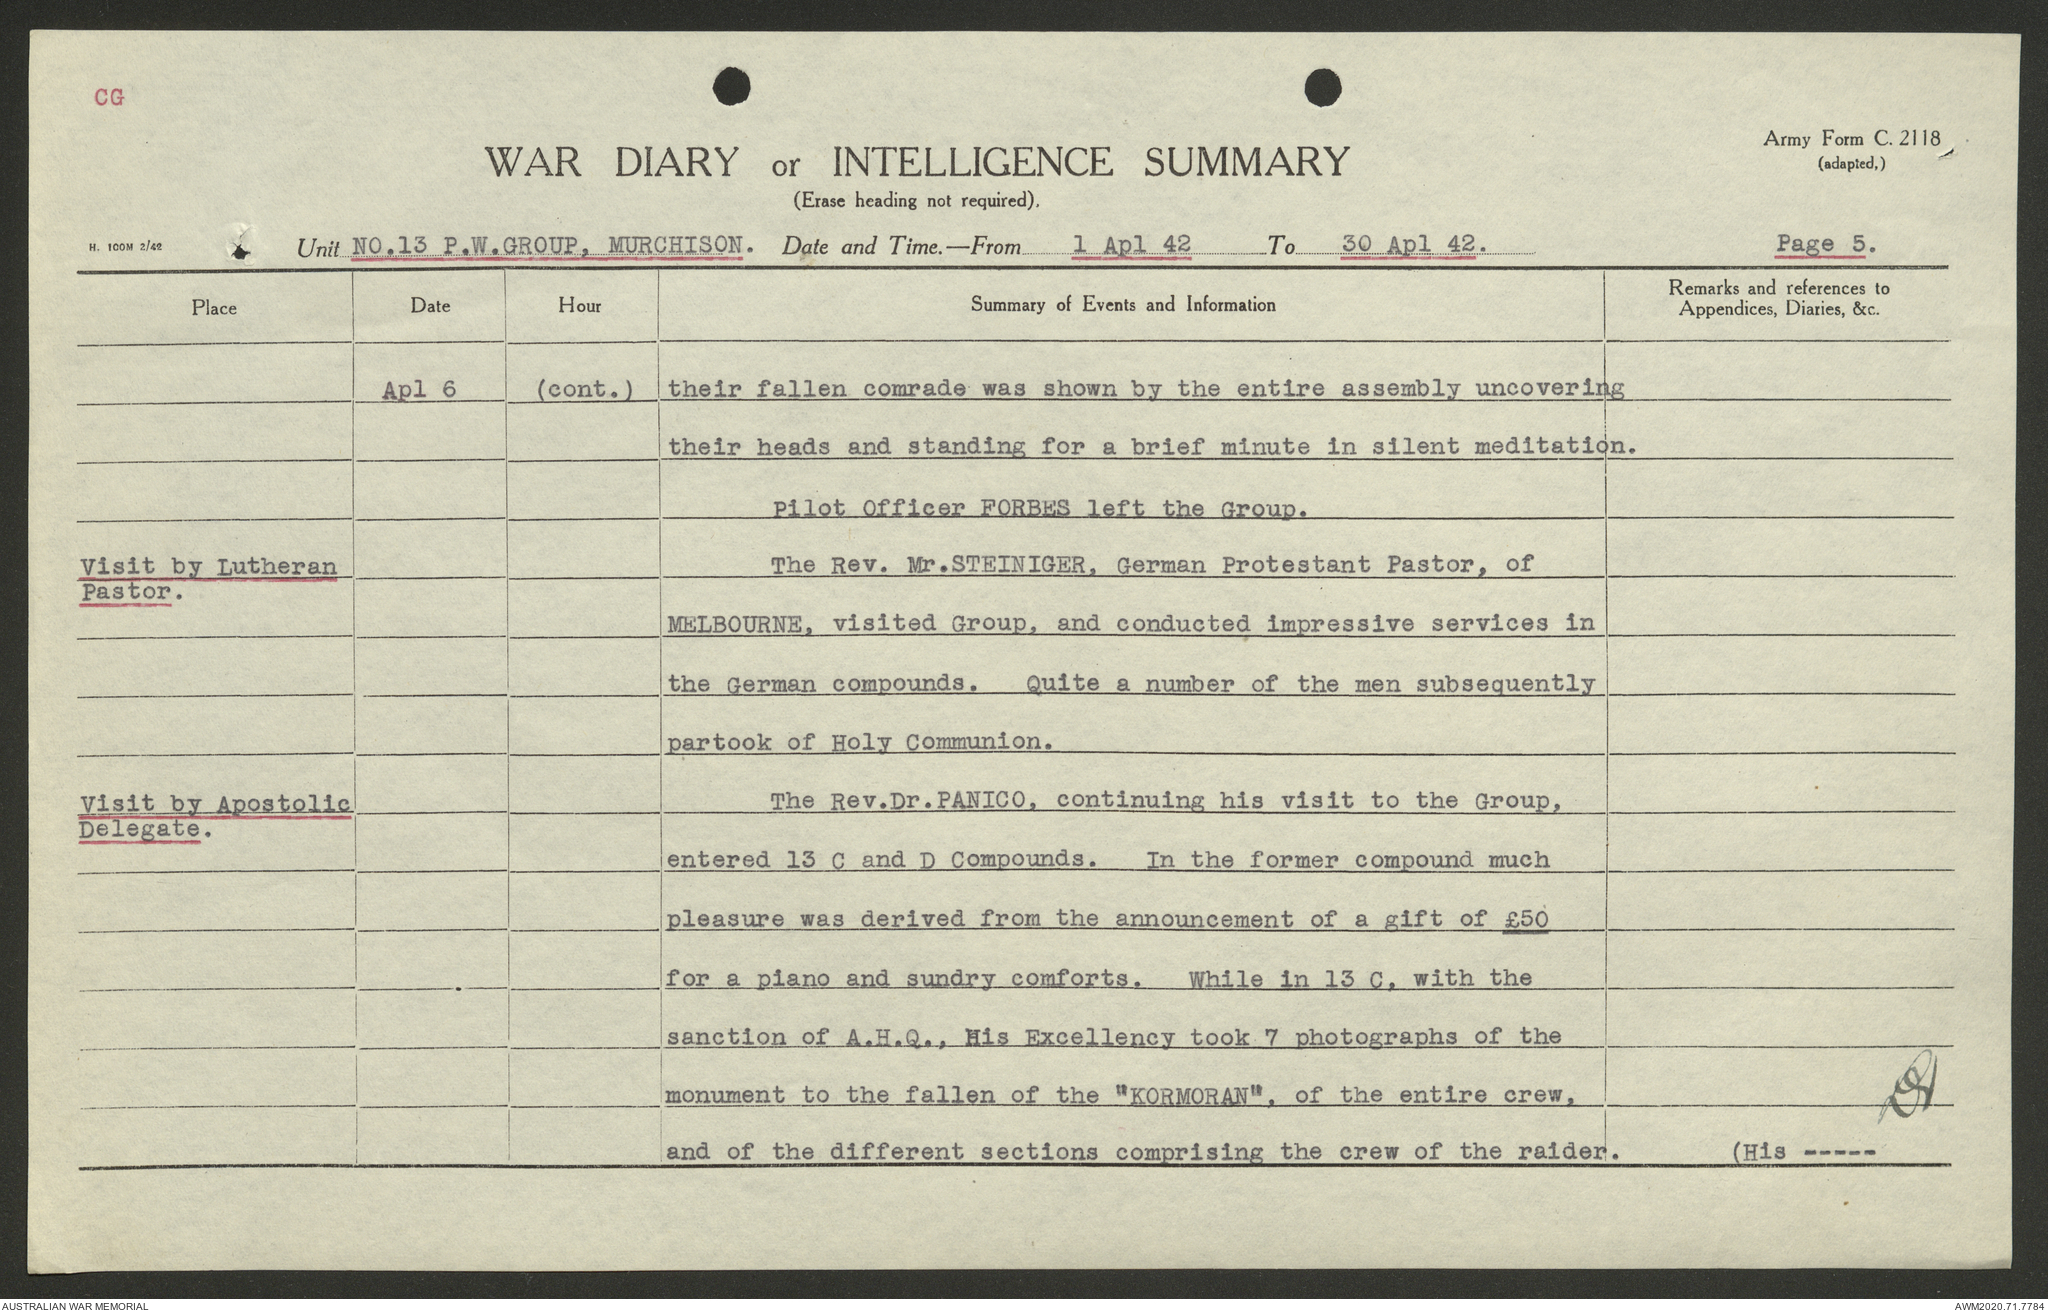 CG
Army Form C. 2118
(adapted.)
WAR DIARY or INTELLIGENCE SUMMARY
(Erase heading not required).
H. 100M 2/42
Unit NO.13 P.W.GROUP, MURCHISON. Date and Time.—From 1 Apl 42 To 30 Apl 42. Page 5.
Place Date Hour Summary of Events and Information Remarks and references to
Appendices, Diaries, &c.
Apl 6 (cont.) their fallen comrade was shown by the entire assembly uncovering
their heads and standing for a brief minute in silent meditation.
Pilot Officer FORBES left the Group.
Visit by Lutheran
Pastor.
The Rev. Mr.STEINIGER, German Protestant Pastor, of
MELBOURNE, visited Group, and conducted impressive services in
the German compounds. Quite a number of the men subsequently
partook of Holy Communion.
Visit by Apostolic
Delegate.
The Rev.Dr.PANICO, continuing his visit to the Group,
entered 13 C and D Compounds. In the former compound much
pleasure was derived from the announcement of a gift of £50
for a piano and sundry comforts. While in 13 C, with the
sanction of A.H.Q., His Excellency took 7 photographs of the
monument to the fallen of the "KORMORAN", of the entire crew,
and of the different sections comprising the crew of the raider. (His -----
AUSTRALIAN WAR MEMORIAL
AWM2020.71.7784